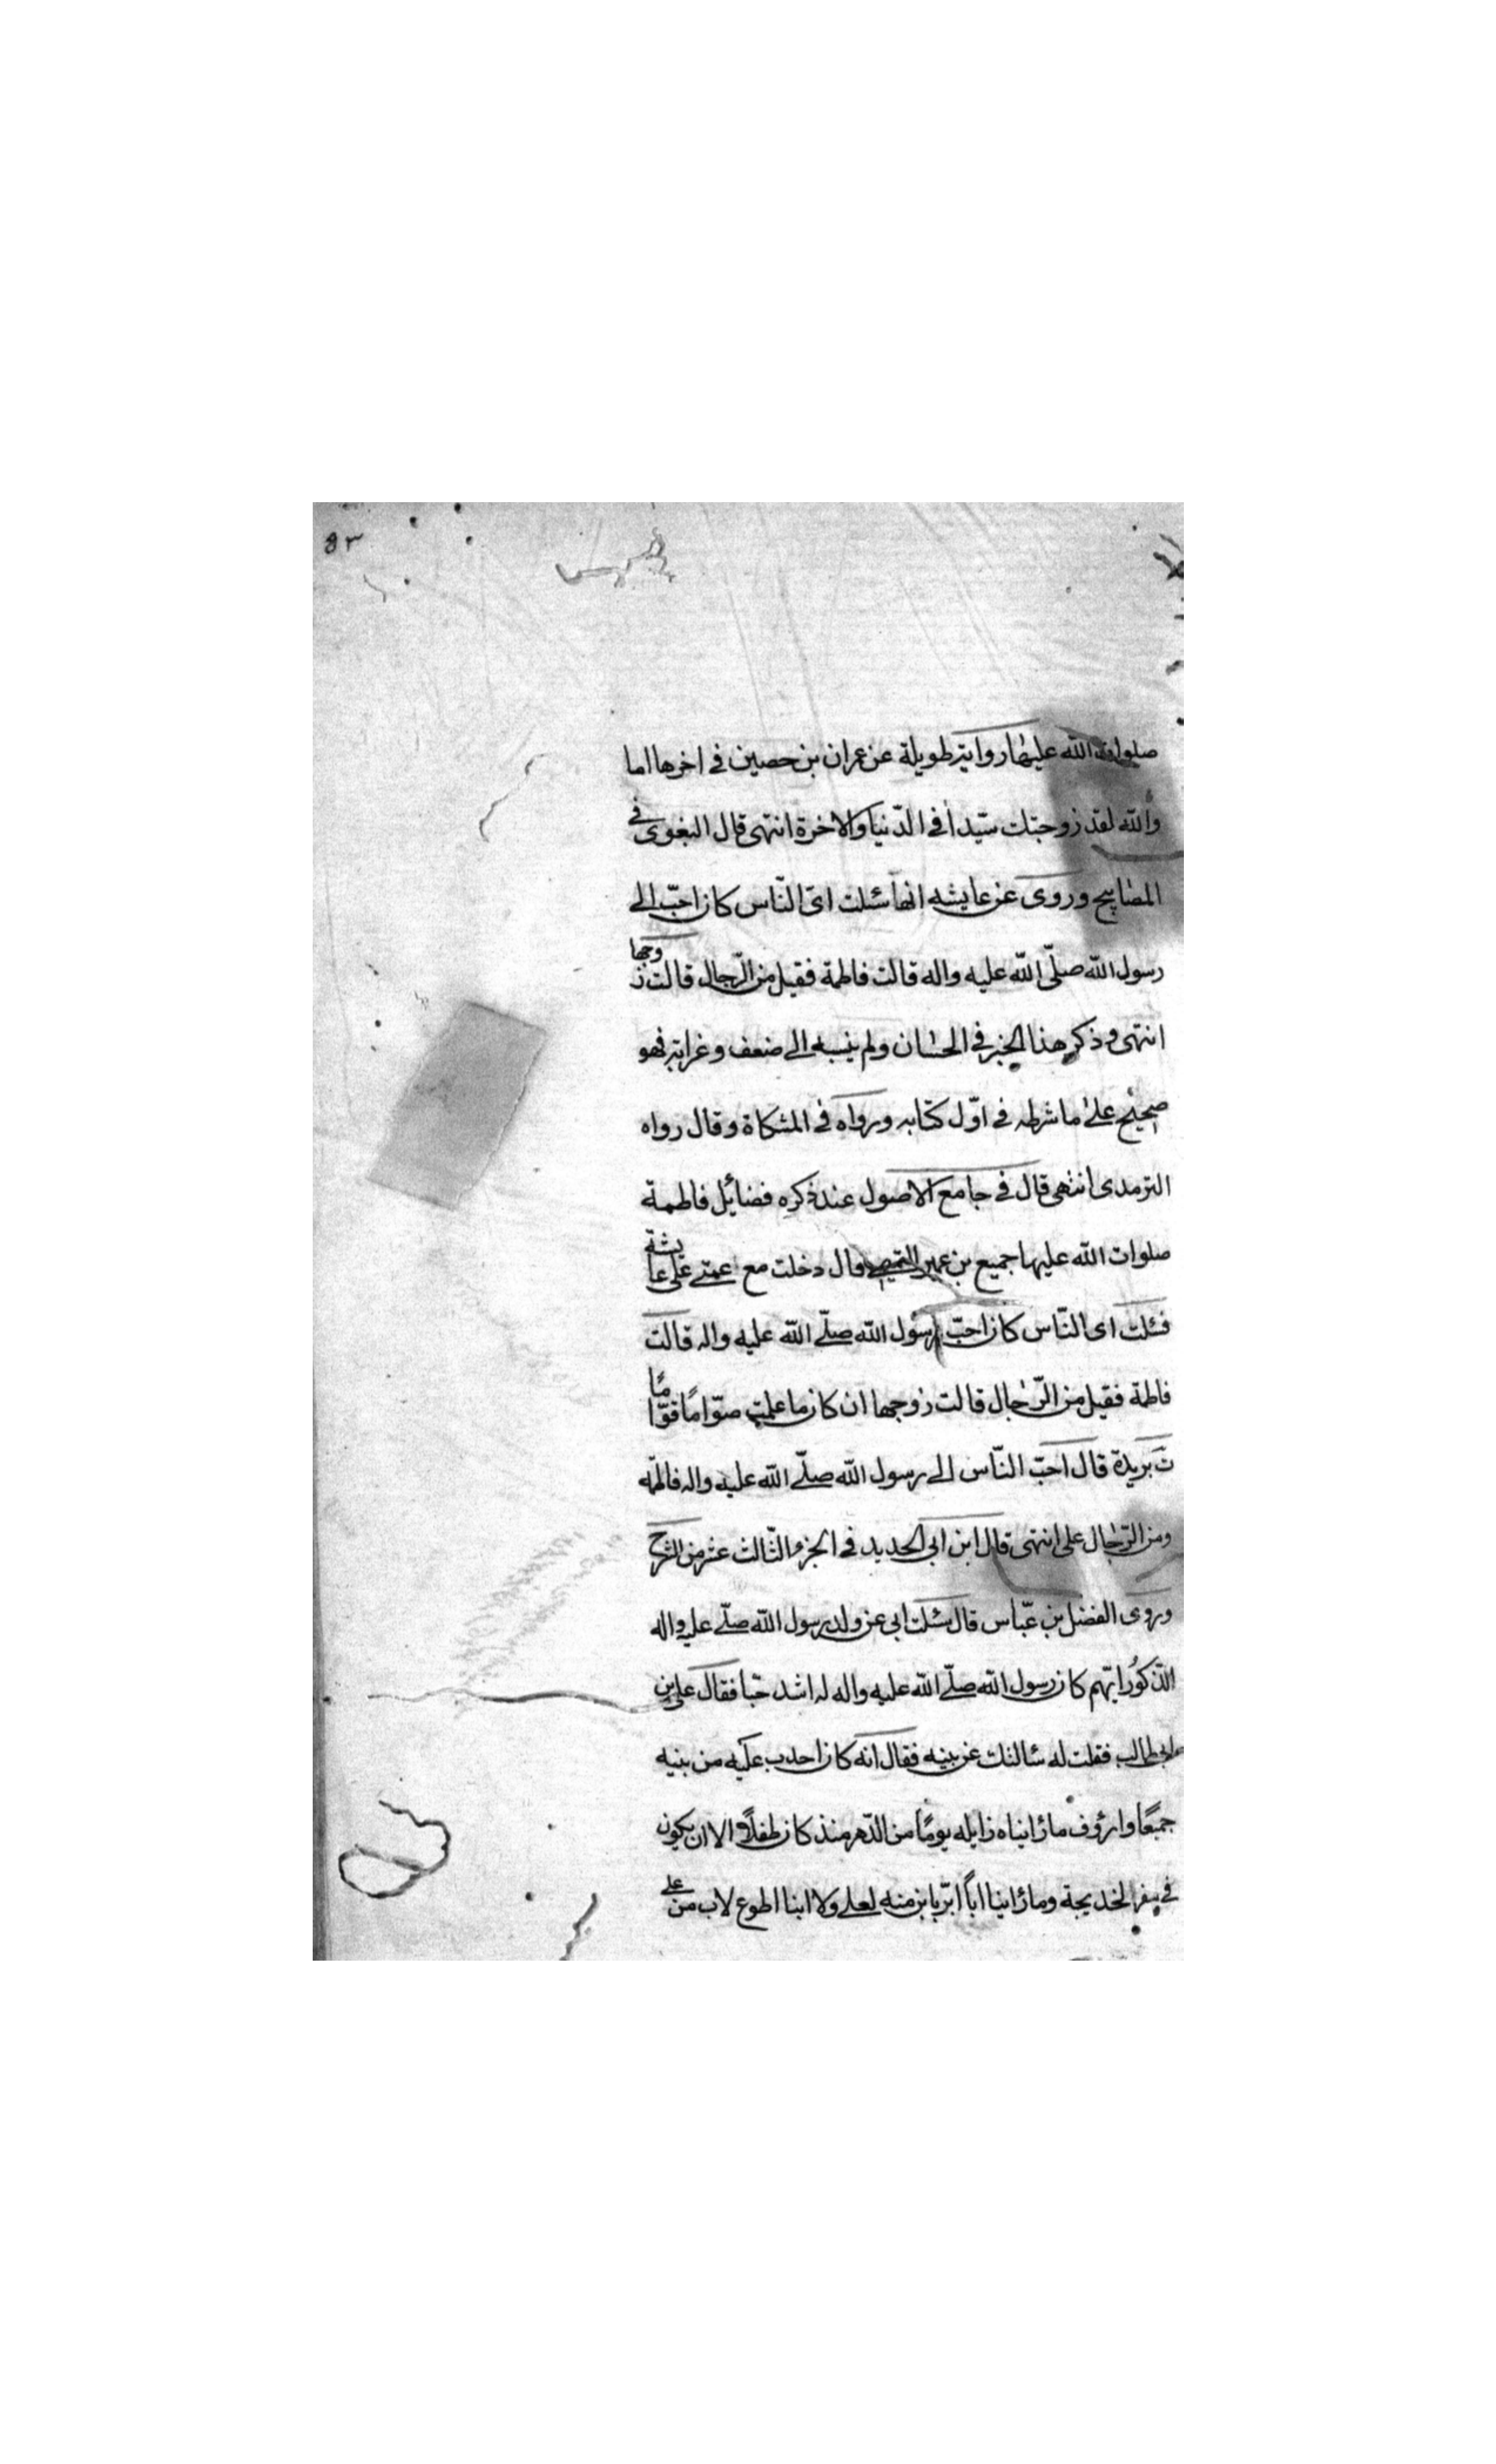 ٥٣
صلوات الله عليها رواية طويلة عن عمران بن حصين في اخرها اما
والله لقد زوجتك سيّداً في الدّنيا والاخرة انتهى قال البغوى في
المصابيح وروى عن عايشه انها سئلت اىّ النّاس كان احبّ الى
رسول الله صلّى الله عليه واله قالت فاطمة فقيل من الرّجال قالت زوجها
انتهى وذكر هذا الخبر في الحسان ولم ينسبه الى ضعف وغرابة فهو
صحيح على ما شرطه في اوّل كتابه ورواه في المشكاة وقال رواه
الترمدى انتهى قال في جامع الاصول عند ذكره فضايل فاطمة
صلوات الله عليها جميع بن عمير التميمى قال دخلت مع عمتى على عايشة
فسئلت اى النّاس كان احبّ رسول الله صلّى الله عليه واله قالت
فاطمة فقيل من الرّجال قالت زوجها ان كان ما علمت صوّامًا قوّامًا
ت بريدة قال احبّ النّاس الى رسول الله صلّى الله عليه واله فاطمه
ومن الرّجال على انتهى قال ابن ابى الحديد في الجزء الثّالث عشر من الشرح
وروى الفضل بن عبّاس قال سئلت ابى عن ولد رسول الله صلّى عليه واله
الذّكور ايّهم كان رسول الله صلّى الله عليه واله له اشد حبّا فقال على بن
ابى طالب فقلت له سالتك عن بنيه فقال انه كان احدب عليه من بنيه
جميعًا وارؤف ما رأيناه زايله يومًا من الدّهر منذ كان طفلاً الا ان يكون
في سفر لخديجة وما رأينا اباً ابرّ بابن منه لعلى ولا ابنا اطوع لاب من على